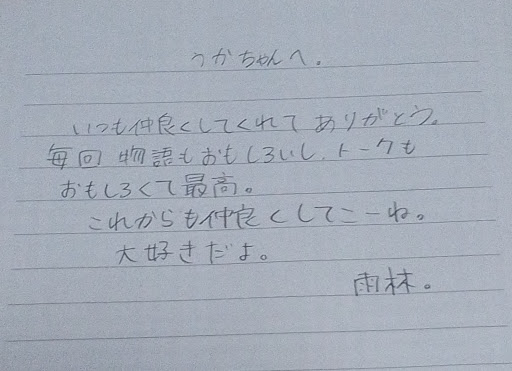 うかちゃんへ。
いつも仲良くしてくれてありがとう。
毎回物語もおもしろいし、トークも
おもしろくて最高。
これからも仲良くしてこーね。
大好きだよ。
雨林。